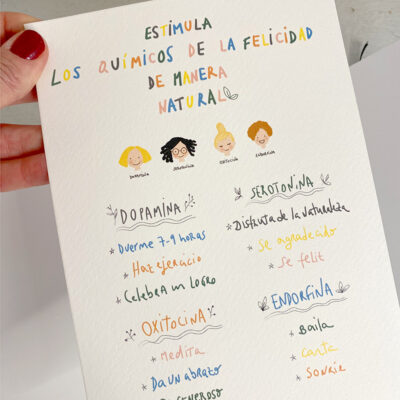 ESTÍMULA
LOS QUÍMICOS DE LA FELICIDAD
DE MANERA
NATURAL
DOPAMINA SEROTONINA OXITOCINA ENDORFINA
DOPAMINA
* DUERME 7-9 HORAS
* HAZ EJERCICIO
* CELEBRA UN LOGRO
SEROTONINA
* DISFRUTA DE LA NATURALEZA
* SE AGRADECIDO
* SE FELIZ
OXITOCINA
* MEDITA
* DA UN ABRAZO
GENEROSO
ENDORFINA
* BAILA
* CANTA
* SONRIE